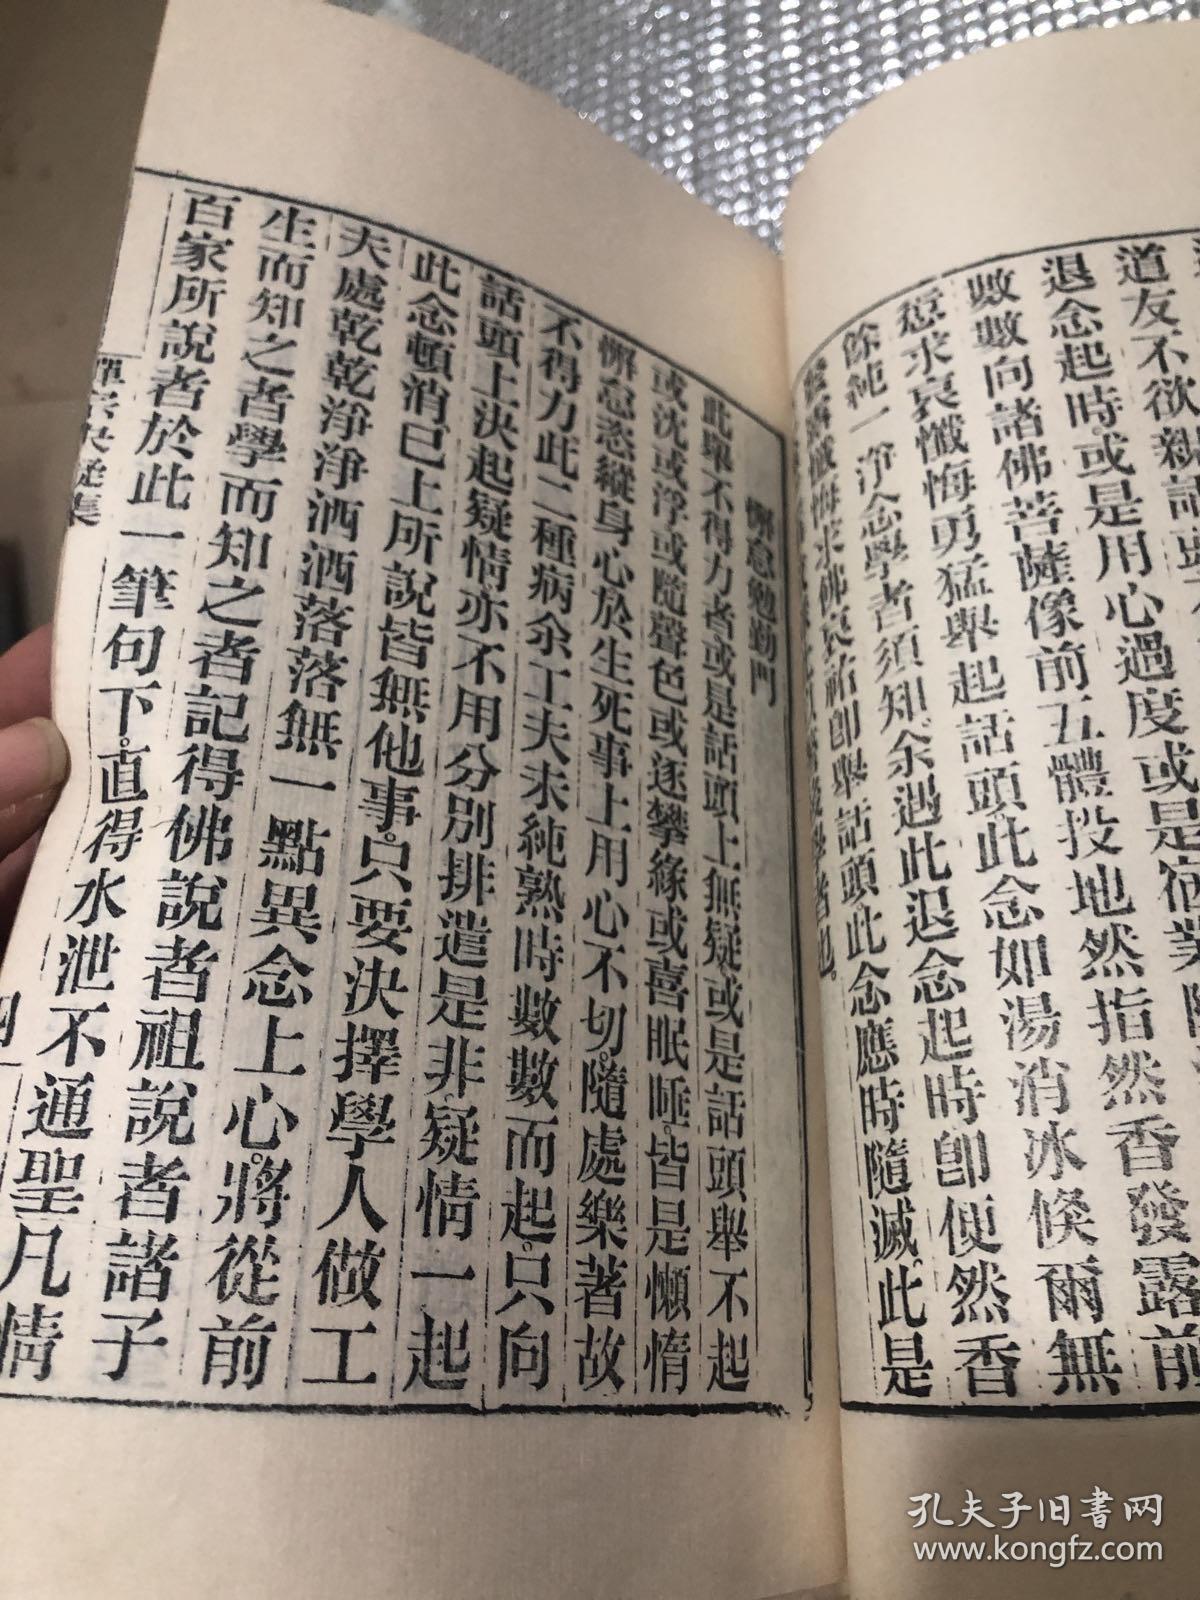 道友不欲親話頭
退念起時或是用心過度或是宿業
數數向諸佛菩薩像前五體投地然指然香發露前
愆求哀懺悔勇猛舉起話頭此念如湯消冰倏爾無
餘純一淨念學者須知余遇此退念起時卽便然香
懺悔求佛哀祐卽舉話頭此念應時隨滅此是
學者也
懈怠勉勤門
此舉不得力者或是話頭上無疑或是話頭舉不起
或沈或浮或隨聲色或逐攀緣或喜眠睡皆是懶惰
懈怠恣縱身心於生死事上用心不切隨處樂著故
不得力此二種病余工夫未純熟時數數而起只向
話頭上決起疑情亦不用分別排遣是非疑情一起
此念頓消已上所說皆無他事只要決擇學人做工
夫處乾乾淨淨洒洒落落無一點異念上心將從前
生而知之者學而知之者記得佛說者祖說者諸子
百家所說者於此一筆句下直得水泄不通聖凡情
禪宗決疑集
四
孔夫子旧书网
www.kongfz.com